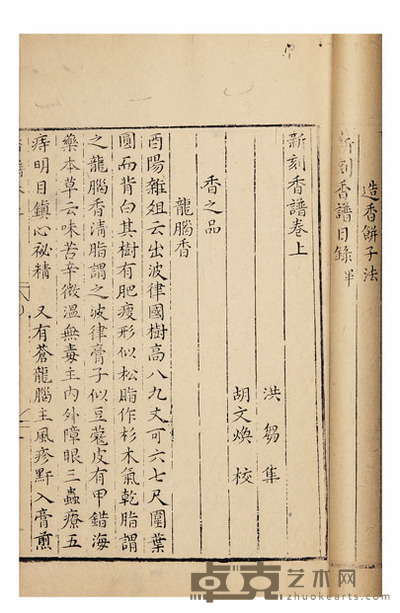 造香餅子法
新刻香譜目錄畢
新刻香譜卷上
洪芻集
胡文煥校
香之品
龍腦香
酉陽雜俎云出波律國樹高八九丈可六七尺圍葉
圓而背白其樹有肥瘦形似松脂作杉木氣乾脂謂
之龍腦香清脂謂之波律膏子似豆蔻皮有甲錯海
藥本草云味苦辛微溫無毒主內外障眼三蟲療五
痔明目鎮心祕精 又有蒼龍腦主風疹䵟入膏煎
卓克艺术网
www.zhuokearts.com